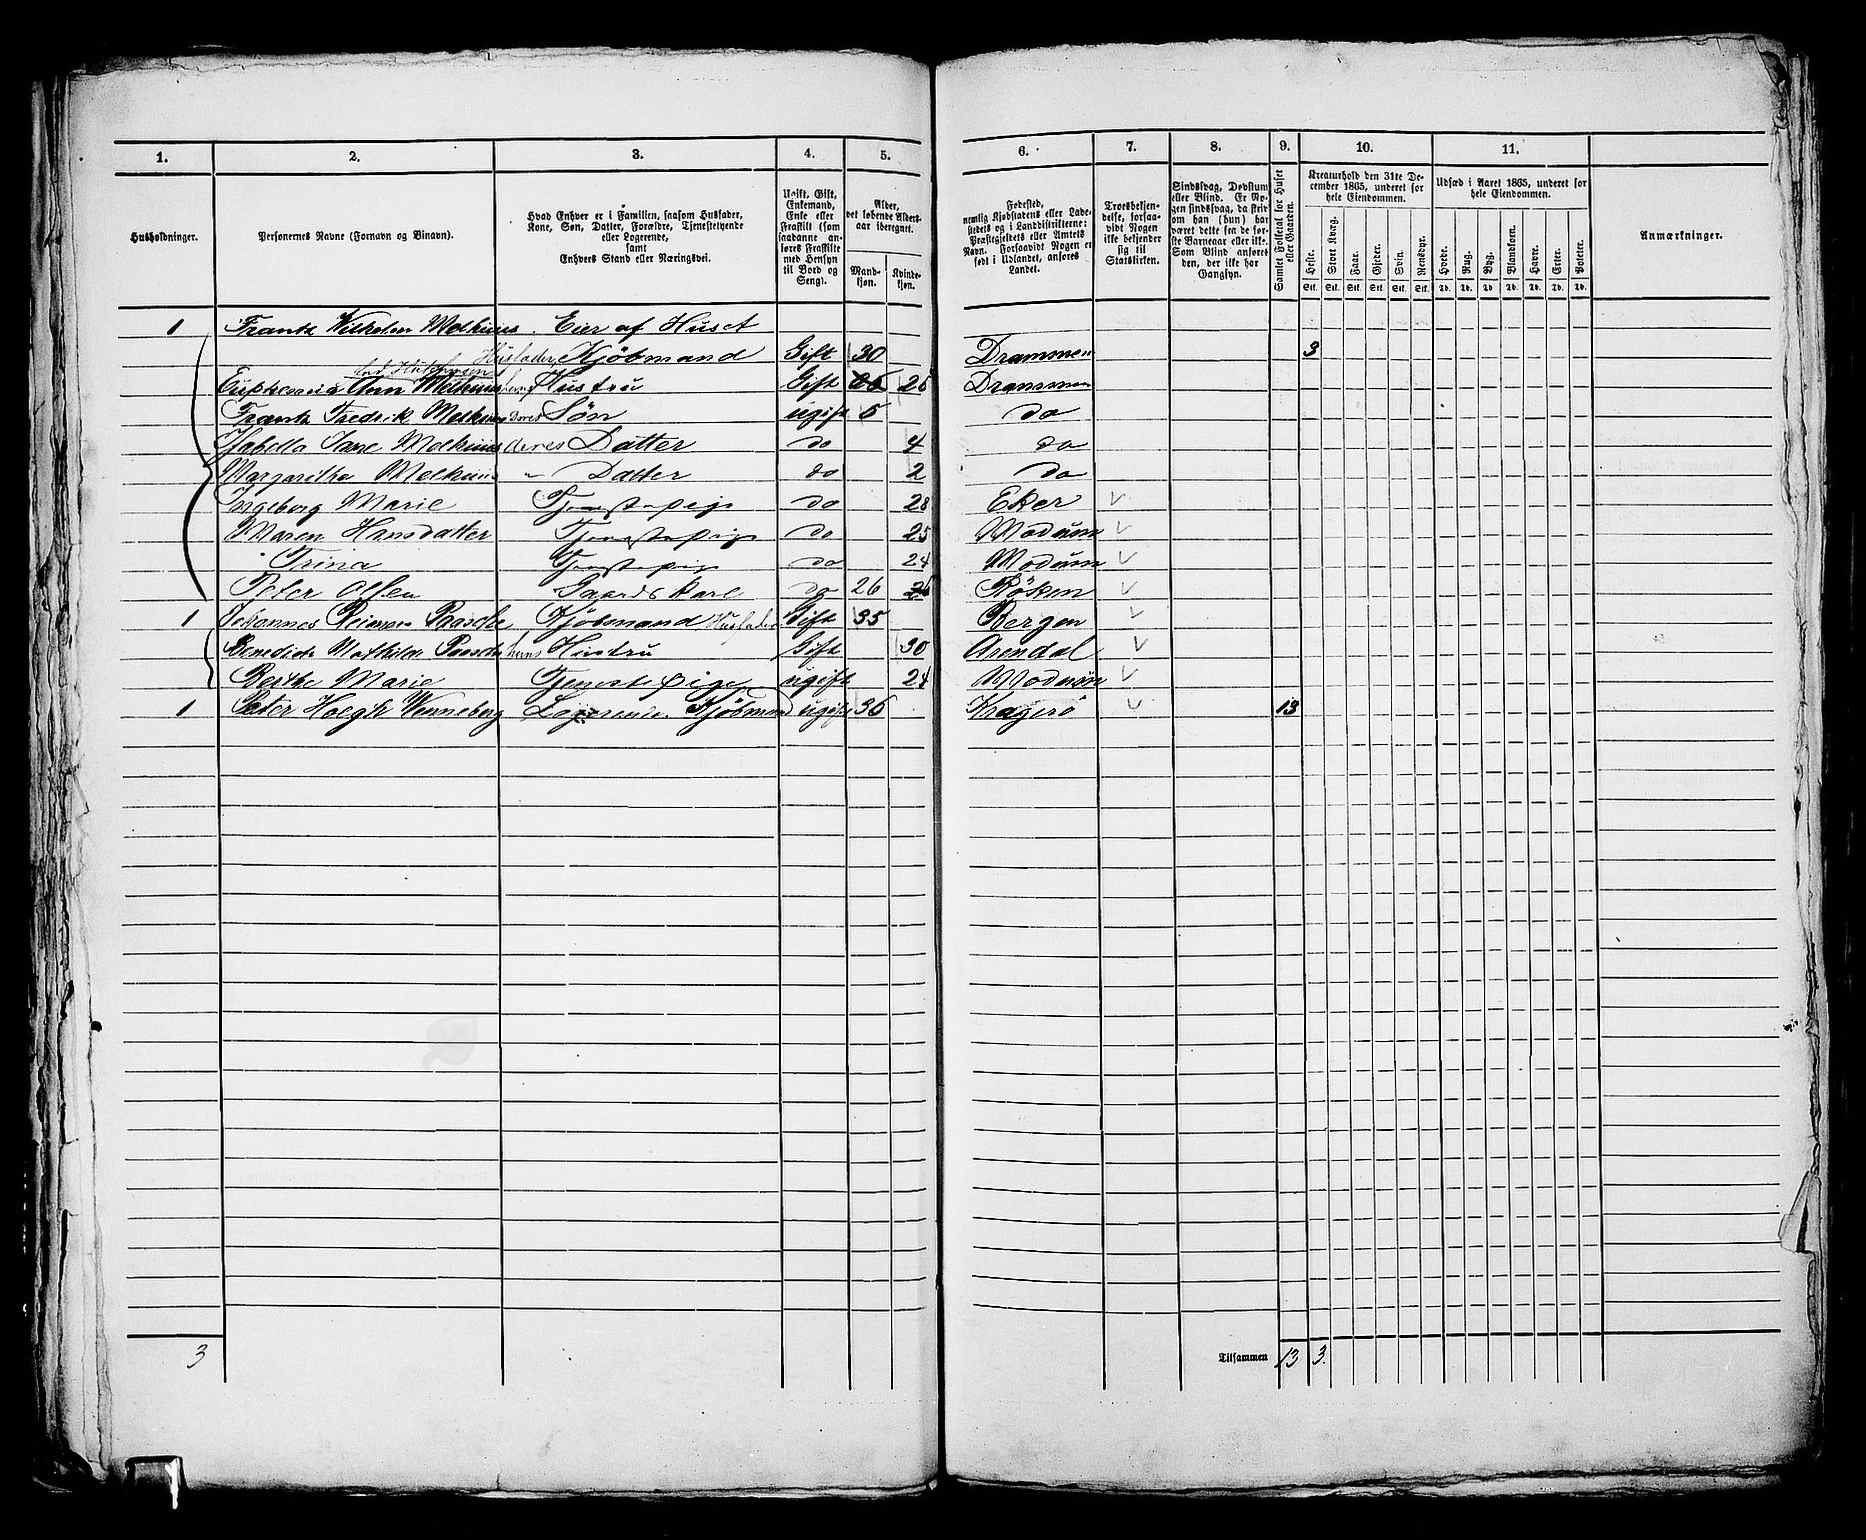 1. 2. 3. 4. 5. 6. 7. 8. 9. 10. 11.
Husholdninger.
Personernes Navne (Fornavn og Binavn).
Hvad Enhver er i Familien, saasom Husfader,
Kone, Søn, Datter, Forældre, Tjenestetyende
eller Logerende,
samt
Enhvers Stand eller Næringsvei.
Ugift, Gift,
Enkemand,
Enke eller
Fraskilt (som
saadanne an-
føres Fraskilte
med Hensyn
til Bord og
Seng).
Alder,
det løbende Alders-
aar iberegnet.
Mand-
kjøn.
Kvinde-
kjøn.
Fødested,
nemlig Kjøbstadens eller Lade-
stedets og i Landdistrikterne:
Præstegjeldets eller Amtets
Navn. Forsaavidt Nogen er
født i Udlandet, anføres
Landet.
Troesbekjen-
delse, forsaa-
vidt Nogen
ikke bekjender
sig til
Statskirken.
Sindssvag, Døvstum
eller Blind. Er No-
gen sindssvag, da skriv
om han (hun) har
været dette fra de før-
ste Barneaar eller ikke.
Som Blind anføres
den, der ikke har
Gangsyn.
Samlet Folketal for Huset
eller Gaarden.
Kreaturhold den 31te De-
cember 1865, underet for
hele Eiendommen.
Heste. Stort Kvæg. Faar. Gjeder. Svin. Rensdyr.
Stk. Stk. Stk. Stk. Stk. Stk.
Udsæd i Aaret 1865, underet for
hele Eiendommen.
Hvede. Rug. Byg. Blandkorn. Havre. Erter. Poteter.
Td. Td. Td. Td. Td. Td. Td.
Anmærkninger.
1 Frantz Wilhelm Melhuus Eier af Huset
Husfader, Kjöbmand Gift 30 Drammen 3
Ann Melhuus hans Hustru Gift 26 Drammen
Frantz Fredrik Melhuus deres Sön ugift 5 do
Isabella Melhuus deres Datter do 4 do
Margarethe Melhuus " Datter do 2 do
Ingeborg Marie Tjenestepige do 28 Eker
Maren Hansdatter Tjenestepige do 25 Modum
Trina Tjenestepige do 24 Modum
Peter Olsen Gaardskarl do 26 Röken
1 Johannes Reimers Paaske Kjöbmand Husfader Gift 35 Bergen
Benedicte Mathilde Paaske hans Hustru Gift 30 Arendal
Berthe Marie Tjenestpige ugift 24 Modum
1 Peter Hoegh Wenneberg Logerende. Kjöbmand ugift 36 Kragerö 13
3 Tilsammen 13 3.